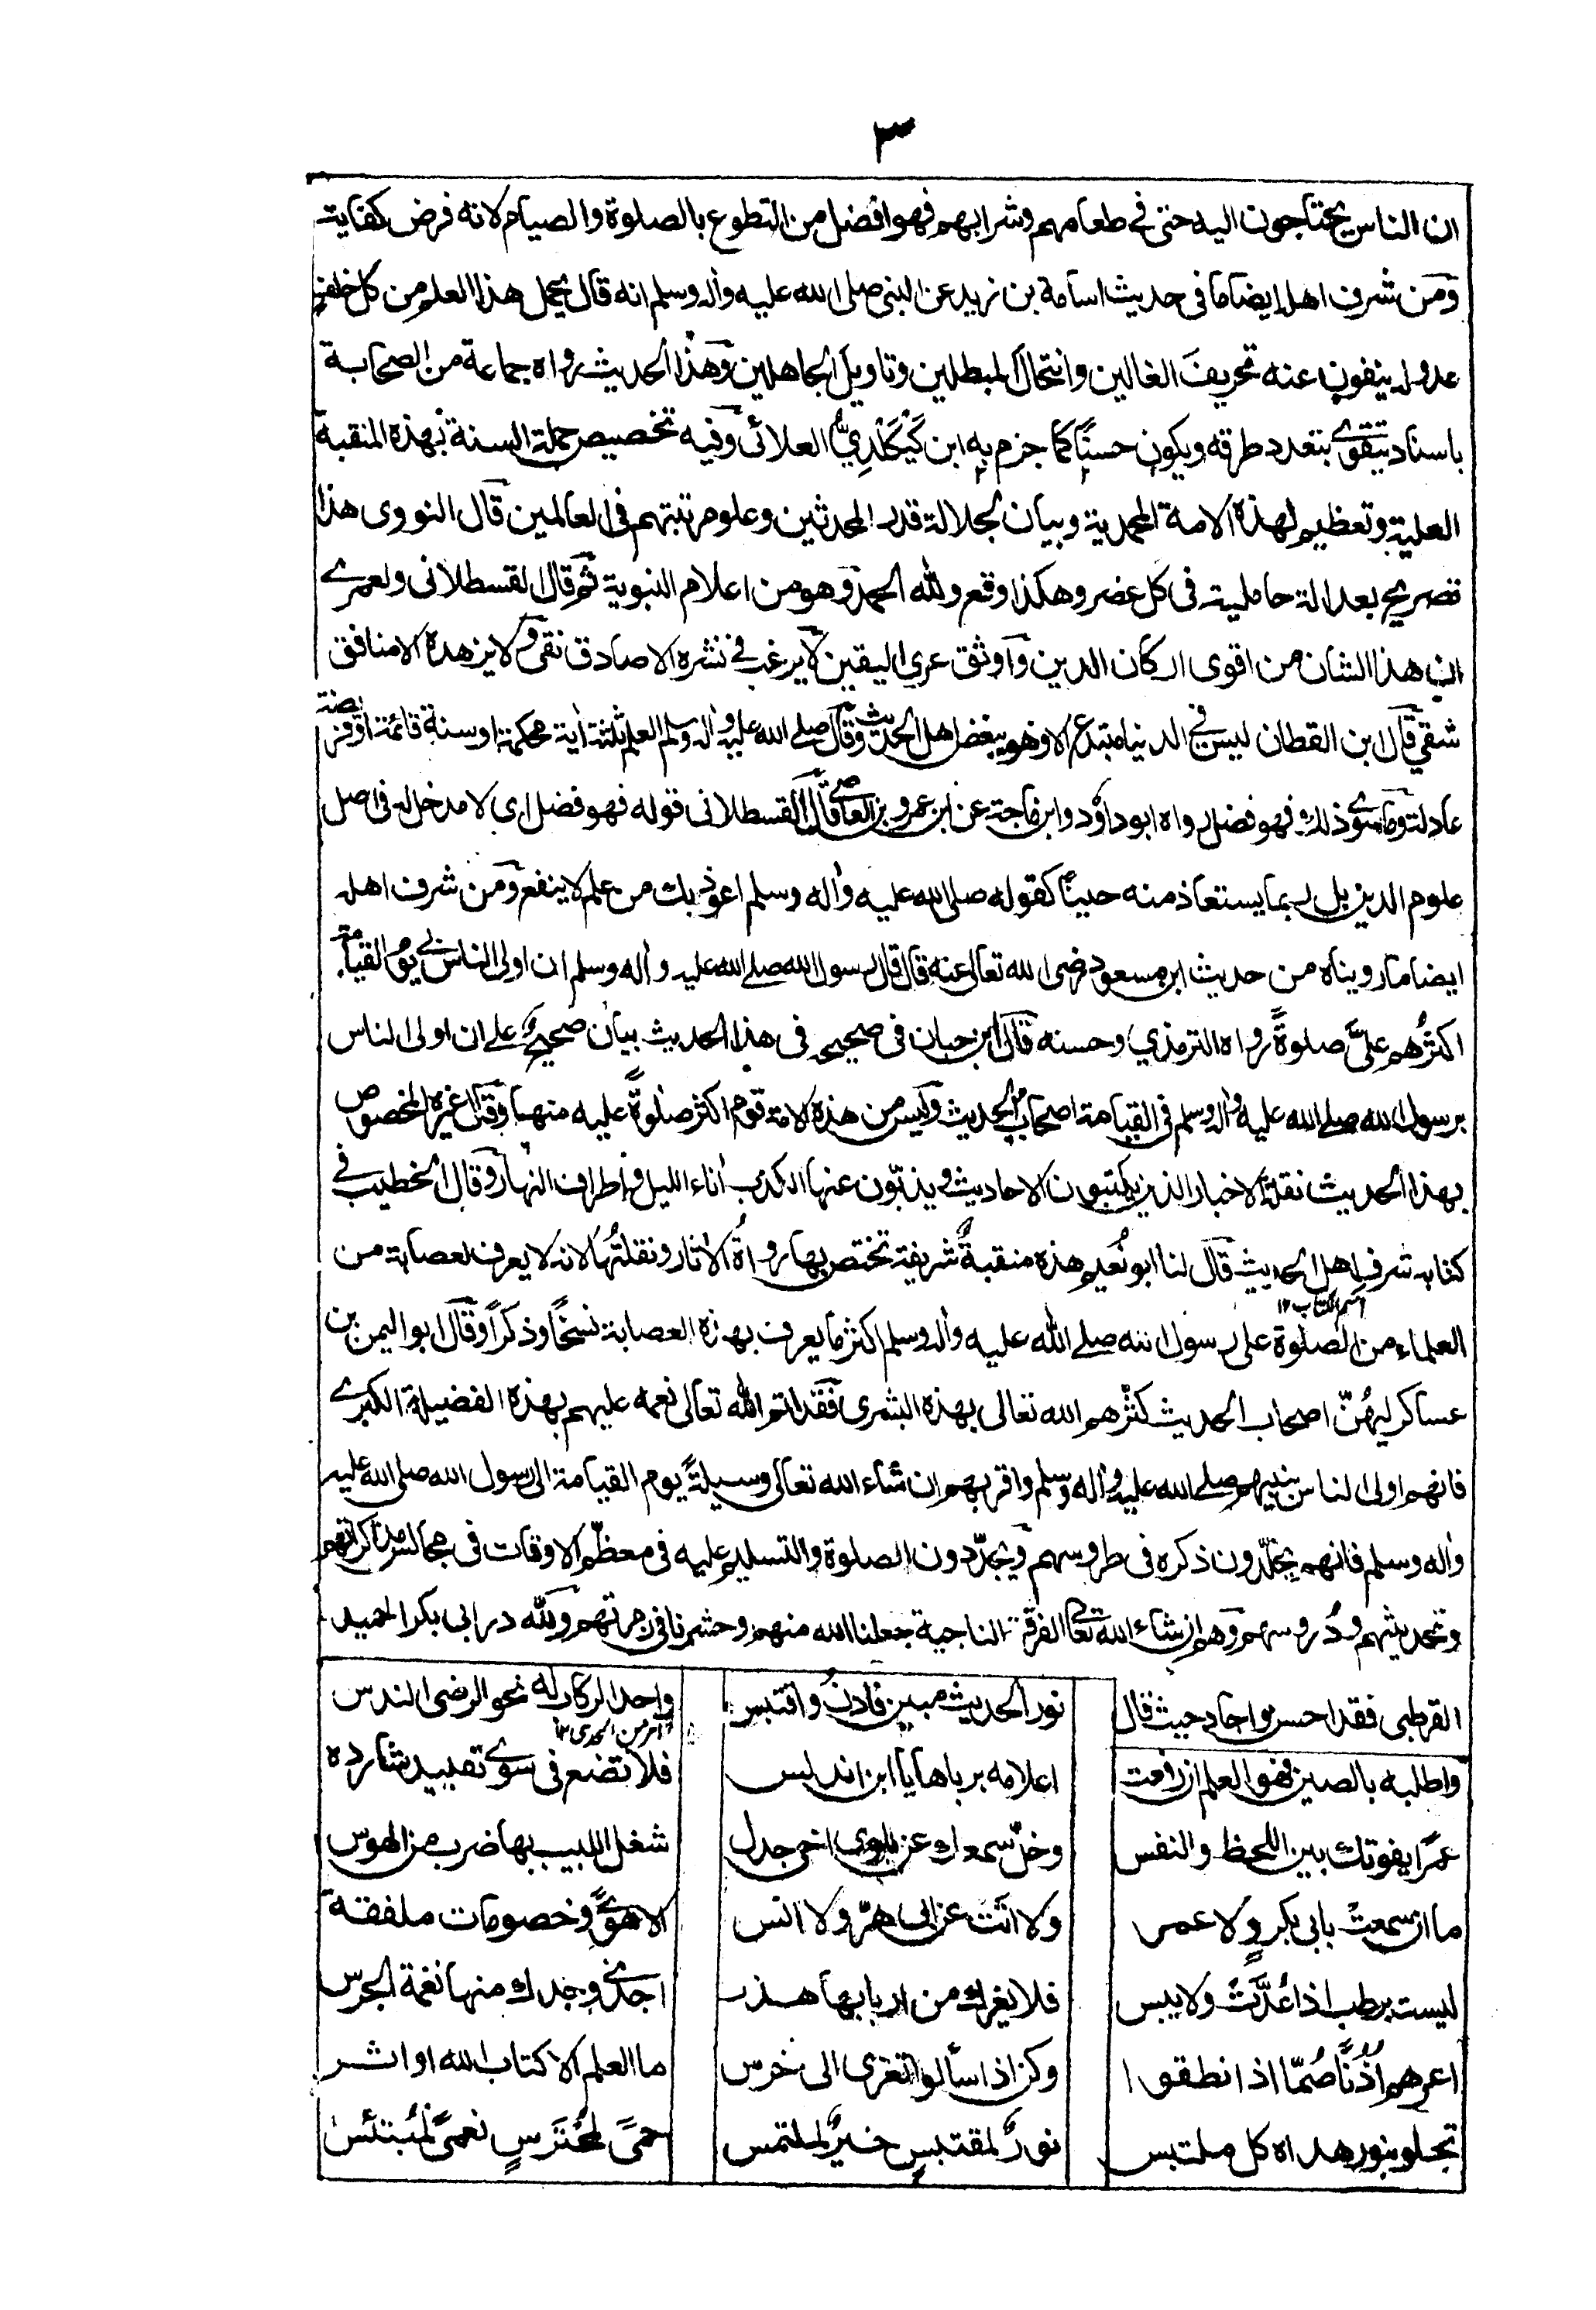 ٣
ان الناس يحتاجون اليه حتى في طعامهم وشرابهم فهو افضل من التطوع بالصلوة والصيام لانه فرض كفاية
ومن شرف اهله ايضا ما في حديث اسامة بن زيد عن النبي صلى الله عليه واٰله وسلم انه قال يحمل هذا العلم من كل خلف
عدوله ينفون عنه تحريفَ الغالين وانتحال المبطلين وتاويل الجاهلين وهذا الحديث رواه جماعة من الصحابة
باسناد يتقوى بتعدد طرقه ويكون حسنًا كما جزم به ابن كَيْكَلْدِيُّ العلائى وفيه تخصيص حملة السنة بهذه المنقبة
العلية وتعظيم لهذه الامة المحمدية وبيان لجلالة قدر المحدثين وعلو مرتبتهم فى العالمين قال النووى هذا
تصريح بعدالة حامليه فى كل عصر وهكذا وقع ولله الحمد وهو من اعلام النبوية ثم قال القسطلانى ولعمرے
ان هذا الشان من اقوى اركان الدين واوثق عرى اليقين لا يرغب في نشره الا صادق نقى ولا يزهده الا منافق
شقي قال ابن القطان ليس في الدنيا مبتدع الا وهو يبغض اهل الحديث وقال صلے الله عليه واٰله وسلم العلم ثلثة اٰية محكمة او سنة قائمة او فريضة
عادلة وما سوے ذلك فهو فضل رواه ابو داؤد وابن ماجة عن ابن عمرو بن العاص قال القسطلانى قوله فهو فضل اى لا مدخل له فى اصل
علوم الدين بل ربما يستعاذ منه حينًا كقوله صلى الله عليه واٰله وسلم اعوذ بك من علم لا ينفع ومن شرف اهله
ايضا ما رويناه من حديث ابن مسعود رضى الله تعالى عنه قال قال رسول الله صلے الله عليه واٰله وسلم ان اولى الناس بي يوم القيامة
اكثرُهم علىَّ صلوةً رواه الترمذي وحسنه قال ابن حبان فى صحيحه فى هذا الحديث بيان صحيح علے ان اولى الناس
برسول الله صلے الله عليه واٰله وسلم فى القيامة اصحاب الحديث وليس من هذه الامة قوم اكثر صلوةً عليه منهم وقال غيره المخصوص
بهذا الحديث نقلة الاخبار الذين يكتبون الاحاديث ويذبّون عنها الكذب اٰناء الليل واطراف النهار وقال الخطيب في
كتابه شرف اهل الحديث قال لنا ابو نُعيم هذه منقبةٌ شريفة تختص بها رواةُ الاٰثار ونقلتُها لانه لا يعرف لعصابة من
اسم الكتاب ١٢
العلماء من الصلوة على رسول الله صلے الله عليه واٰله وسلم اكثر ما يعرف بهذه العصابة نسخًا وذكرًا وقال ابو اليمن بن
عساكر ليهنّ اصحاب الحديث كثّرهم الله تعالى بهذه البشرى فقد اتم الله تعالى نعمه عليهم بهذه الفضيلة الكبرے
فانهم اولى الناس بنبيهم صلے الله عليه واٰله وسلم واقربهم ان شاء الله تعالى وسيلةً يوم القيامة الى رسول الله صلى الله عليه
واٰله وسلم فانهم يخلّدون ذكره فى طروسهم ويجدّدون الصلوة والتسليم عليه فى معظم الاوقات فى مجالس مذاكراتهم
وتحديثهم ودُروسهم وهم ان شاء الله تعالى الفرقة الناجية جعلنا الله منهم وحشرنا فى زمرتهم ولله در ابى بكر الحميد
القرطبى فقد احسن واجاد حيث قال
نور الحديث مبين فادنُ واقتبس
واحد الركاب له نحو الرضى الندس
امر من الحدى ١٢
واطلبه بالصين فهو العلم ان رفعت
اعلامه برباها يا ابن اندلس
فلا تضع فى سوے تقييد شارده
عمرًا يفوتك بين اللحظ والنفس
وخلّ سمعك عن بلوى اخى جدل
شغل اللبيب بها ضرب من الهوس
ما ان سمعتْ بابى بكر ولا عمر
ولا اتت عن ابى هرّ ولا انس
الا هوًى وخصومات ملفقة
ليست برطب اذا عُدَّتْ ولا يبس
فلا يغرك من اربابها هذر
اجدى وجدك منها نغمة الجرس
اعرهم اُذُنًا صُمّا اذا نطقوا
وكن اذا سألوا تعزى الى خرس
ما العلم الا كتاب الله او اثر
تجلو بنور هداه كل ملتبس
نورٌ لمقتبسٍ خيرٌ لملتمس
حمىً لمحترسٍ نعمىً لمبتئس